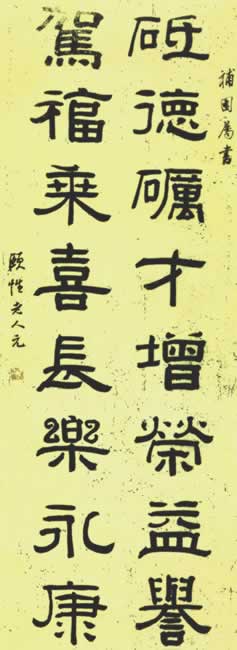 補園屬書
砥德礪才增榮益譽
駕福乘喜長樂永康
頤性老人元